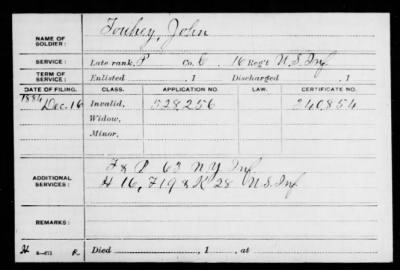 NAME OF SOLDIER: Touhey, John
SERVICE: Late rank, P Co. C, 16 Reg't U.S. Inf
TERM OF SERVICE: Enlisted , 1 Discharged , 1
DATE OF FILING. CLASS. APPLICATION NO. LAW. CERTIFICATE NO.
1884
Dec. 16 Invalid, 528256 340854
Widow,
Minor,
F & P 63 N Y Inf
ADDITIONAL SERVICES: H 16, F 19 & K 28 U.S. Inf
REMARKS:
Died , 1 , at